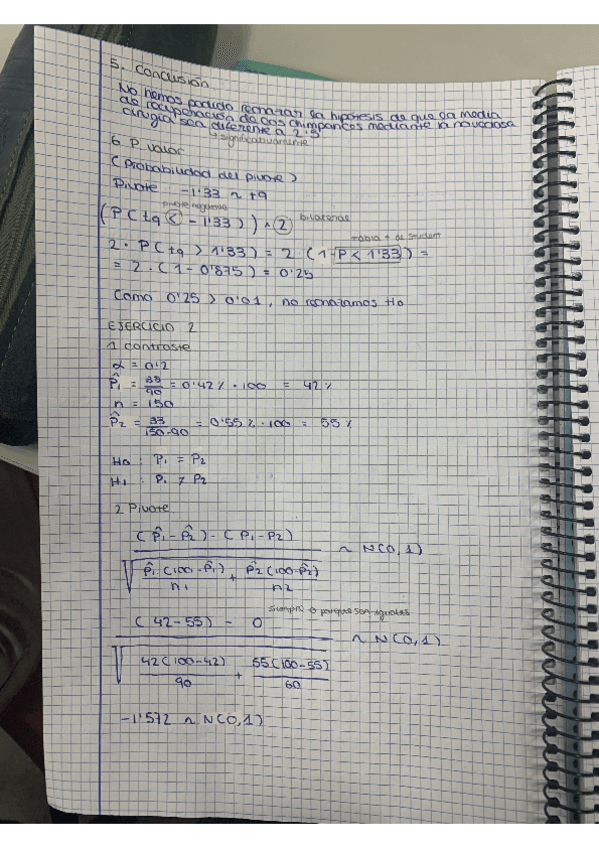 5. Conclusión
No hemos podido rechazar la hipótesis de que la media
de recuperación de los chimpancés mediante la novedosa
cirugía son diferente a 2'5
significativamente
6 P valor
(Probabilidad del pivote)
Pivote -1'33 ~ t9
pivote negativo
(P(t9 < -1'33)) ^ 2 bilateral
tabla t de student
2 · P(t9 > 1'33) = 2 (1-P < 1'33) =
= 2 · (1 - 0'875) = 0'25
Como 0'25 > 0'01, no rechazamos H0
EJERCICIO 2
1 contraste
α = 0'2
P̂1 = 38/90 = 0'42 % · 100 = 42 %
n = 150
P̂2 = 33/150-90 = 0'55 % · 100 = 55 %
H0 : P1 = P2
H1 : P1 ≠ P2
2 Pivote
(P̂1 - P̂2) - (P1 - P2)
~ N(0,1)
√ P̂1 (100 - P̂1)/n1 + P̂2 (100 - P̂2)/n2
siempre 0 porque son iguales
(42-55) - 0
~ N(0,1)
√ 42(100-42)/90 + 55(100-55)/60
-1'572 ~ N(0,1)